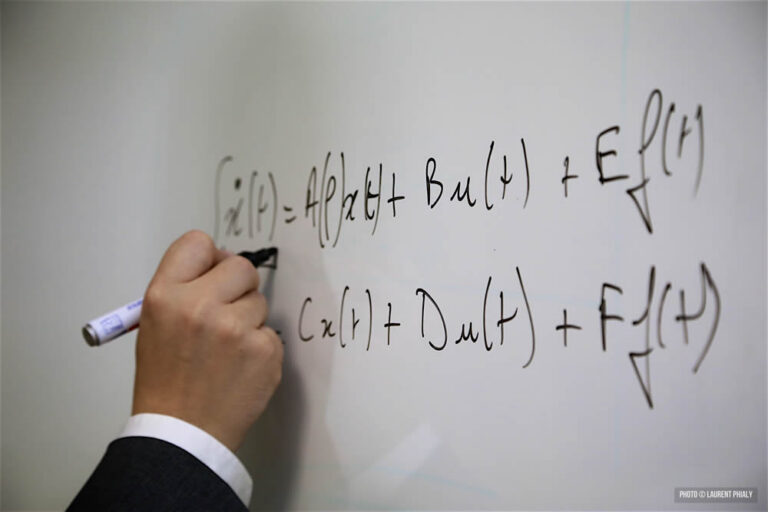 ẋ(t) = A(ρ)x(t) + Bu(t) + Ef(t)
= Cx(t) + Du(t) + Ff(t)
PHOTO © LAURENT PHIALY